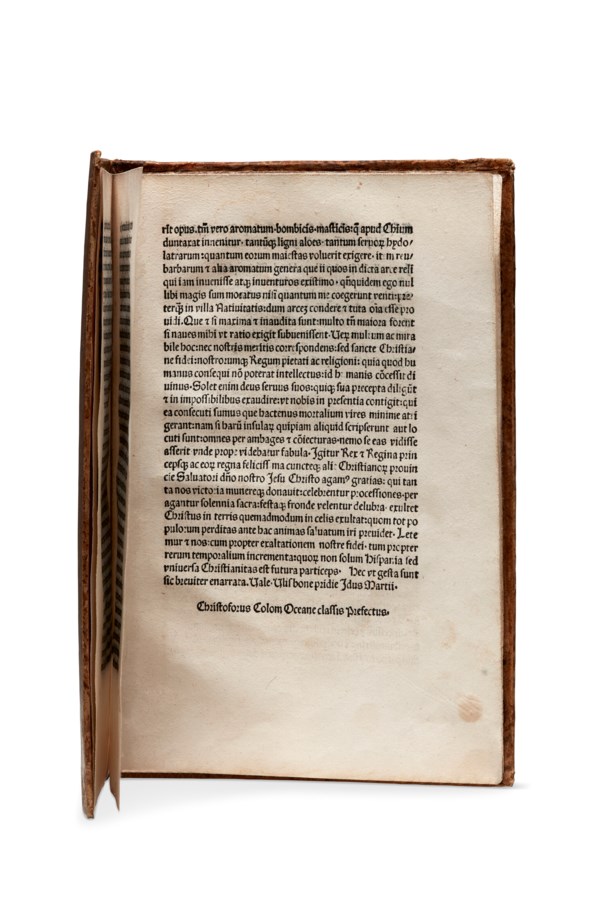 rit opus. tm̄ vero aromatum. bombicis. masticis: q̄ apud Chium
duntaxat inuenitur. tantūq̃ ligni aloes. tantum seruoꝝ hydo/
latrarum: quantum eorum maiestas voluerit exigere. item reu
barbarum ⁊ alia aromatum genera que ii quos in dicta arce reli
qui iam inuenisse atq̃ inuenturos existimo. qn̄quidem ego nul
libi magis sum moratus nisi quantum me coegerunt venti: pre/
terq̃ in villa Natiuitatis: dum arcem condere ⁊ tuta oīa esse pro
uidi. Que ⁊ si maxima ⁊ inaudita sunt: multo tn̄ maiora forent
si naues mihi vt ratio exigit subuenissent. Veꝝ multum ac mira
bile hoc: nec nostris meritis correspondens: sed sancte Christia/
ne fidei: nostrorumq̃ Regum pietati ac religioni: quia quod hu
manus consequi nō poterat intellectus: id humanis cōcessit di
uinus. Solet enim deus seruis suos: quiq̃ sua precepta diligūt
⁊ in impossibilibus exaudire: vt nobis in presentia contigit: qui
ea consecuti sumus que hactenus mortalium vires minime atti
gerant: nam si harū insulaꝝ quipiam aliquid scripserunt aut lo
cuti sunt: omnes per ambages ⁊ cōiecturas. nemo se eas vidisse
asserit vnde prope videbatur fabula. Igitur Rex ⁊ Regina prin
cepsq̃ ac eoꝝ regna felicissima cuncteq̃ alie Christianoꝝ prouin
cie Saluatori dn̄o nostro Jesu Christo agamꝰ gratias: qui tan
ta nos victoria munereq̃ donauit: celebrentur processiones. per
agantur solennia sacra: festaq̃ fronde velentur delubra. exultet
Christus in terris quemadmodum in celis exultat: quom tot po
pulorum perditas ante hac animas saluatum iri preuidet. Lete
mur ⁊ nos: cum propter exaltationem nostre fidei. tum propter
rerum temporalium incrementa: quoꝝ non solum Hispania sed
vniuersa Christianitas est futura particeps. Hec vt gesta sunt
sic breuiter enarrata. Vale. Vlisbone pridie Idus Martii.
Christoforus Colom Oceane classis Prefectus.